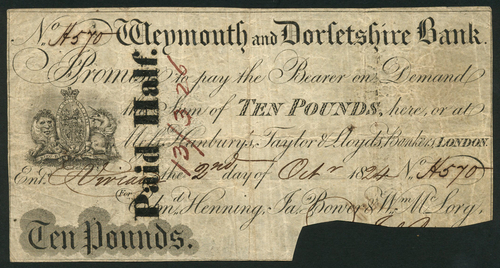 No. H570 Weymouth and Dorsetshire Bank.
Promise to pay the Bearer on Demand
the Sum of TEN POUNDS, here, or at
Hanburys, Taylor & Lloyds, Bankers LONDON.
Entd. the 2nd day of Octr. 1824 No. H570
For Henning, Jas. Bower & Wm. Mc. Lorg,
Ten Pounds.
Paid Half.